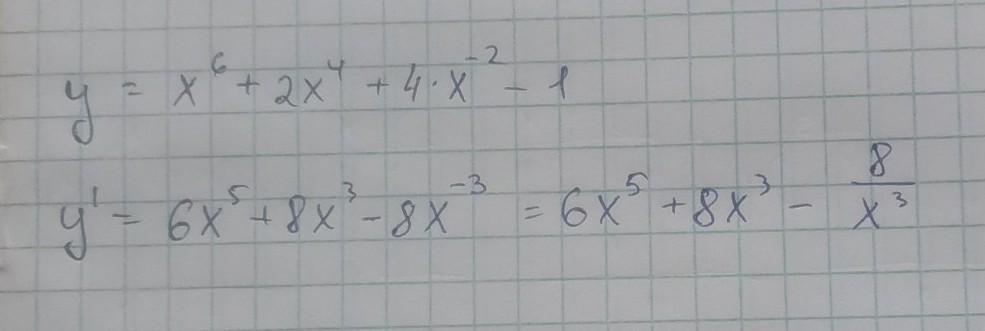 y = x^6 + 2x^4 + 4·x^-2 - 1
y' = 6x^5 + 8x^3 - 8x^-3 = 6x^5 + 8x^3 - 8/x^3